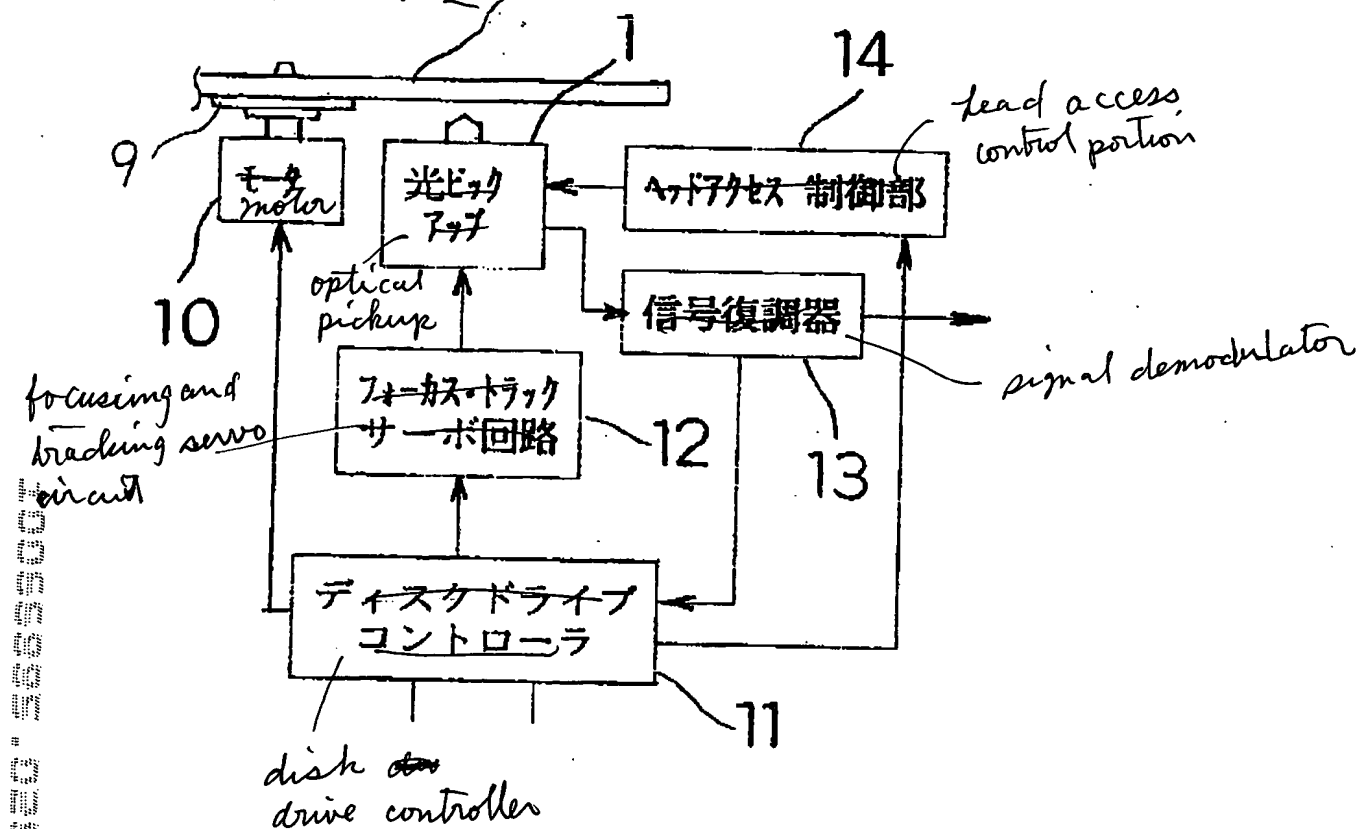 1
14
head access
control portion
9
モータ
motor
光ピック
アップ
ヘッドアクセス 制御部
optical
pickup
10
信号復調器
signal demodulator
focusing and
tracking servo
circuit
フォーカス・トラック
サーボ回路
12
13
ディスクドライブ
コントローラ
11
disk
drive controller